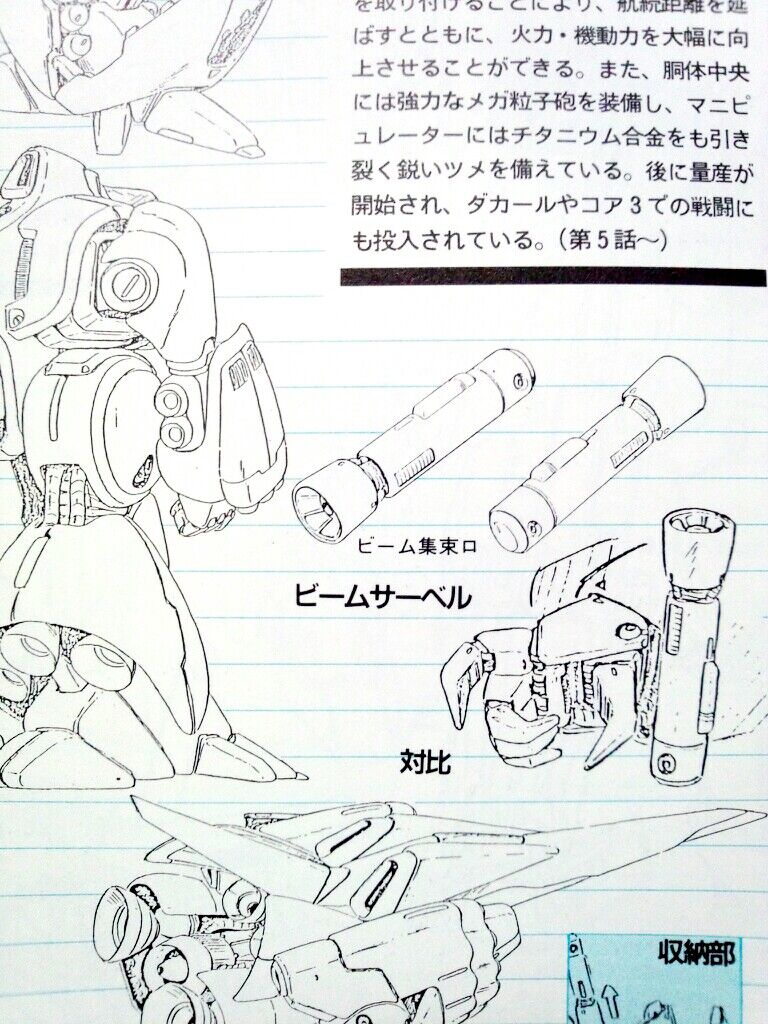 を取り付けることにより、航続距離を延
ばすとともに、火力・機動力を大幅に向
上させることができる。また、胴体中央
には強力なメガ粒子砲を装備し、マニピ
ュレーターにはチタニウム合金をも引き
裂く鋭いツメを備えている。後に量産が
開始され、ダカールやコア3での戦闘に
も投入されている。(第5話〜)
ビーム集束口
ビームサーベル
対比
収納部